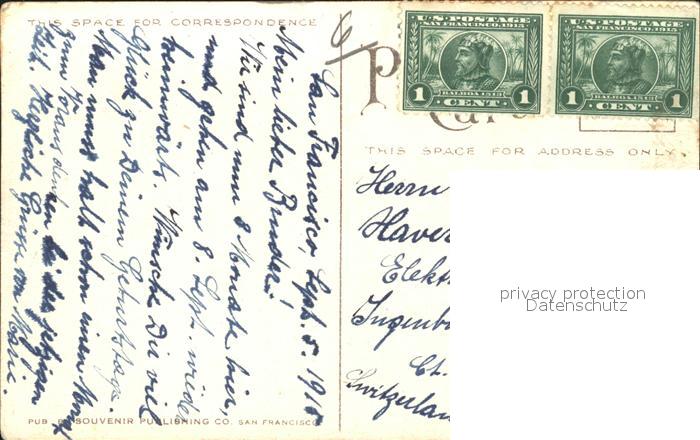 THIS SPACE FOR CORRESPONDENCE
San Francisco, Sept. 5. 1915
Mein lieber Bruder!
Wir sind nun 8 Monate hier,
und gehen am 8. Sept. wieder
heimwärts. Wünsche Dir viel
Glück zu Deinem Geburtstage.
Man muss halt schon einen Monat
zum Voraus denken bei der jetzigen
Zeit. Herzliche Grüsse von Marie.
PUB. BY SOUVENIR PUBLISHING CO. SAN FRANCISCO
U.S. POSTAGE
SAN FRANCISCO, 1915
BALBOA 1513
1 CENT 1
U.S. POSTAGE
SAN FRANCISCO, 1915
BALBOA 1513
1 CENT 1
THIS SPACE FOR ADDRESS ONLY
Herrn
Elekt
Ingenb
Ct.
Switzerlan
privacy protection
Datenschutz